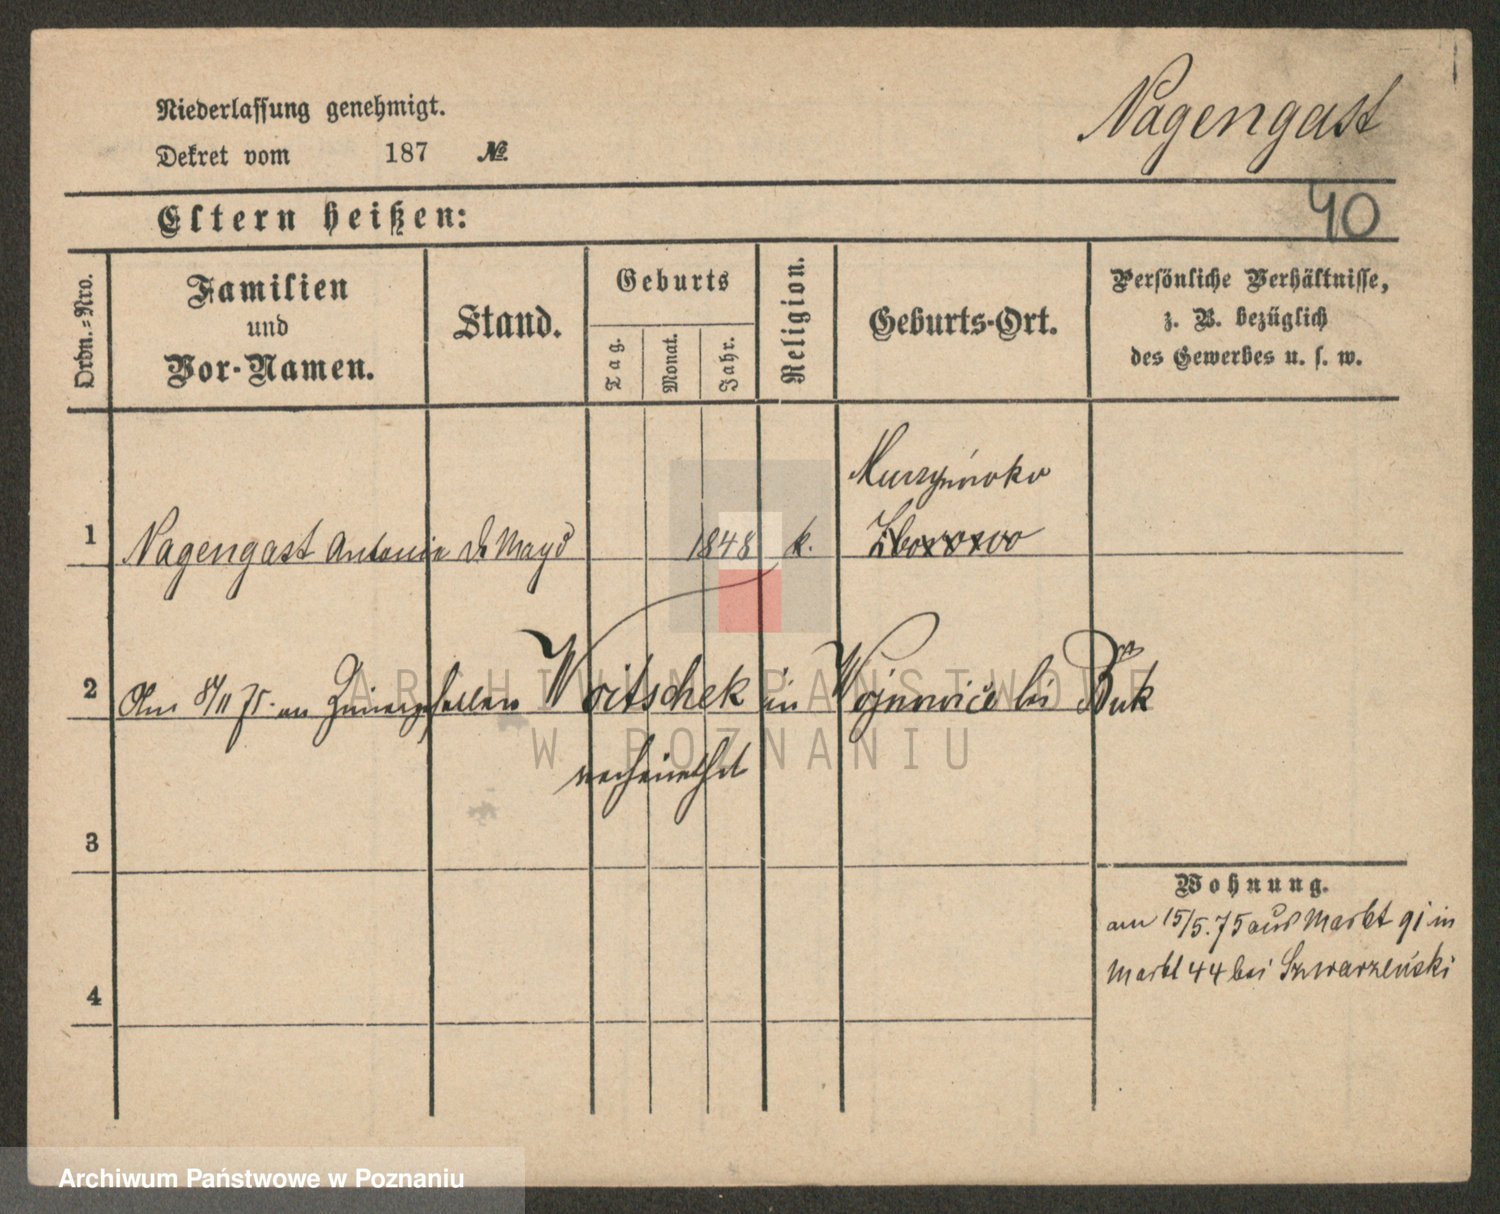 Niederlassung genehmigt.
Dekret vom 187 №
Nagengast
Eltern heißen:
40
Ordn.=Nro.
Familien
und
Vor-Namen.
Stand.
Geburts
Tag.
Monat.
Jahr.
Religion.
Geburts-Ort.
Persönliche Verhältnisse,
z. B. bezüglich
des Gewerbes u. s. w.
1 Nagengast Antonie d. Mayd 1848 k.
2 Am 8/11 75. an Woitschek in Wojnowice bei Buk
verheirathet
3
4
Wohnung.
am 15/5. 75 aus Markt 91 in
Markt 44 bei
ARCHIWUM PAŃSTWOWE
W POZNANIU
Archiwum Państwowe w Poznaniu